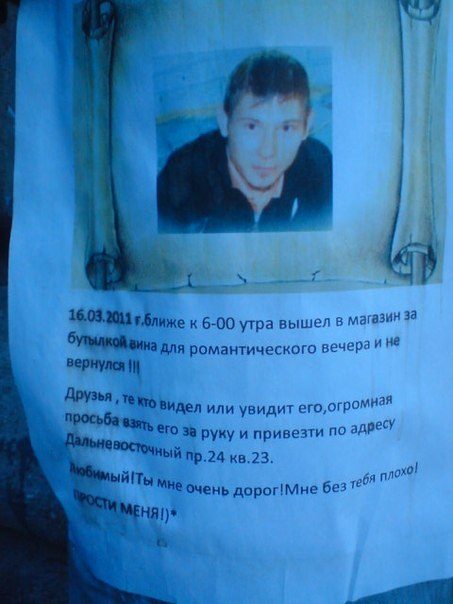 16.03.2011 г.ближе к 6-00 утра вышел в магазин за
бутылкой вина для романтического вечера и не
вернулся !!!
Друзья , те кто видел или увидит его,огромная
просьба взять его за руку и привезти по адресу
Дальневосточный пр.24 кв.23.
Любимый!Ты мне очень дорог!Мне без тебя плохо!
ПРОСТИ МЕНЯ!)*